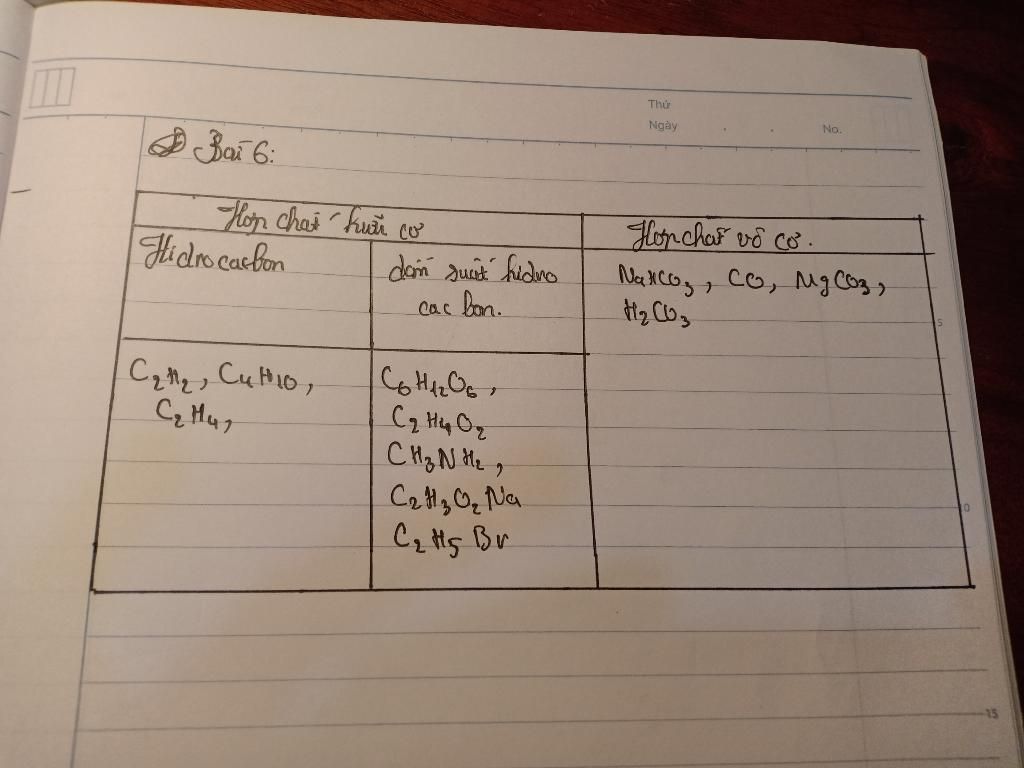 Thứ
Ngày . . No.
Bài 6:
Hợp chất hữu cơ
Hợp chất vô cơ.
Hidrocacbon
dẫn xuất hidro
cac bon.
CO, MgCO3,
H2CO3
C2H2, C4H10,
C2H4,
C6H12O6,
C2H4O2
CH3NH2,
C2H3O2Na
C2H5Br
5
0
15